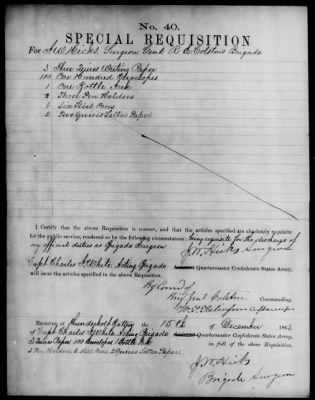 No. 40.
SPECIAL REQUISITION
For J W Hicks, Surgeon Genl. R E Colston's Brigade
3 Three Quires Writing Paper
100 One Hundred Envelopes
1 One Bottle Ink
3 Three Pen Holders
6 Six Steel Pens
2 Two Quires Letter Paper
I Certify that the above Requisition is correct, and that the articles specified are absolutely requisite
for the public service, rendered so by the following circumstances: being requisite for the discharge of
my official duties as Brigade Surgeon
J. W. Hicks Surgeon
Capt Charles White Acting Brigade Quartermaster Confederate States Army,
will issue the articles specified in the above Requisition.
By Comd of
Brig Genl Colston Commanding.
Received at Thunderbolt Battery the 15th of December 1862
of Capt Charles White Acting Brigade Quartermaster Confederate States Army,
3 Quires Paper 100 Envelopes 1 Bottle Ink in full of the above Requisition.
3 Pen Holders 6 Steel Pens 2 Quires Letter Paper
J. W. Hicks
Brigade Surgeon